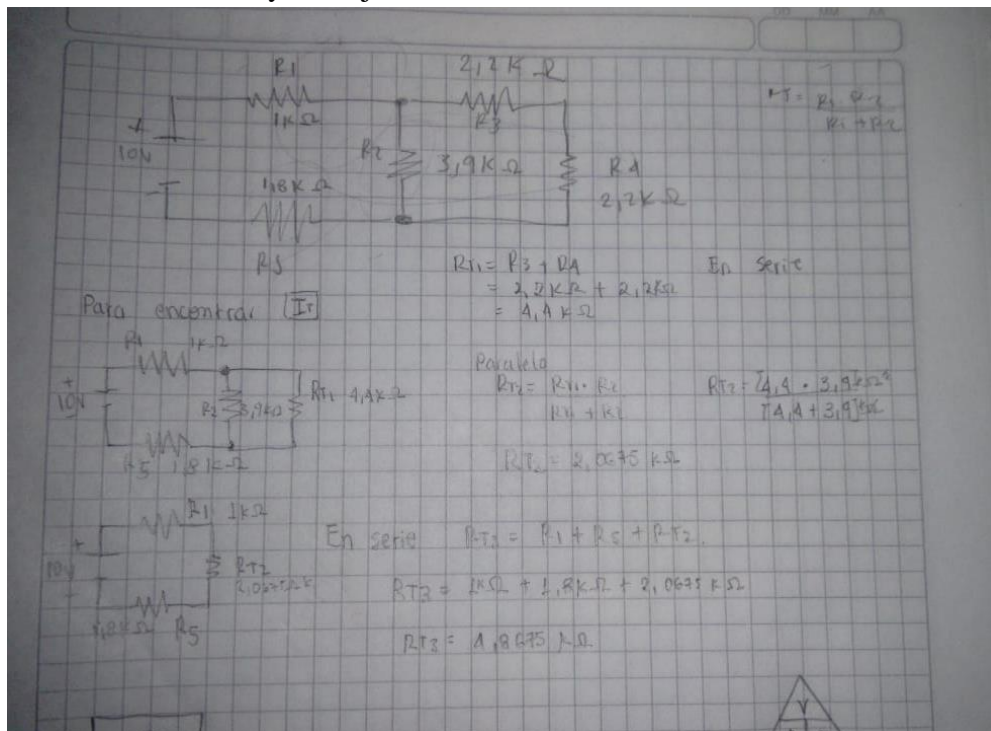 R1
2,2K Ω
1KΩ
R3
RT = R1 · R2
R1 + R2
+
10V
-
R2
3,9K Ω
R4
2,2K Ω
1,8K Ω
R5
RT1 = R3 + R4
En serie
= 2,2KΩ + 2,2KΩ
= 4,4KΩ
Para encontrar IT
R1 1KΩ
+
10V
R2 3,9KΩ
RT1 4,4KΩ
R5 1,8KΩ
Paralelo
RT2 = RT1 · R2
RT1 + R2
RT2 = [4,4 · 3,9]KΩ²
[4,4 + 3,9]KΩ
RT2 = 2,0675 KΩ
R1 1KΩ
+
10V
-
RT2
1,8KΩ R5
En serie RT3 = R1 + R5 + RT2
RT3 = 1KΩ + 1,8KΩ + 2,0675 KΩ
RT3 = 4,8675 KΩ
V